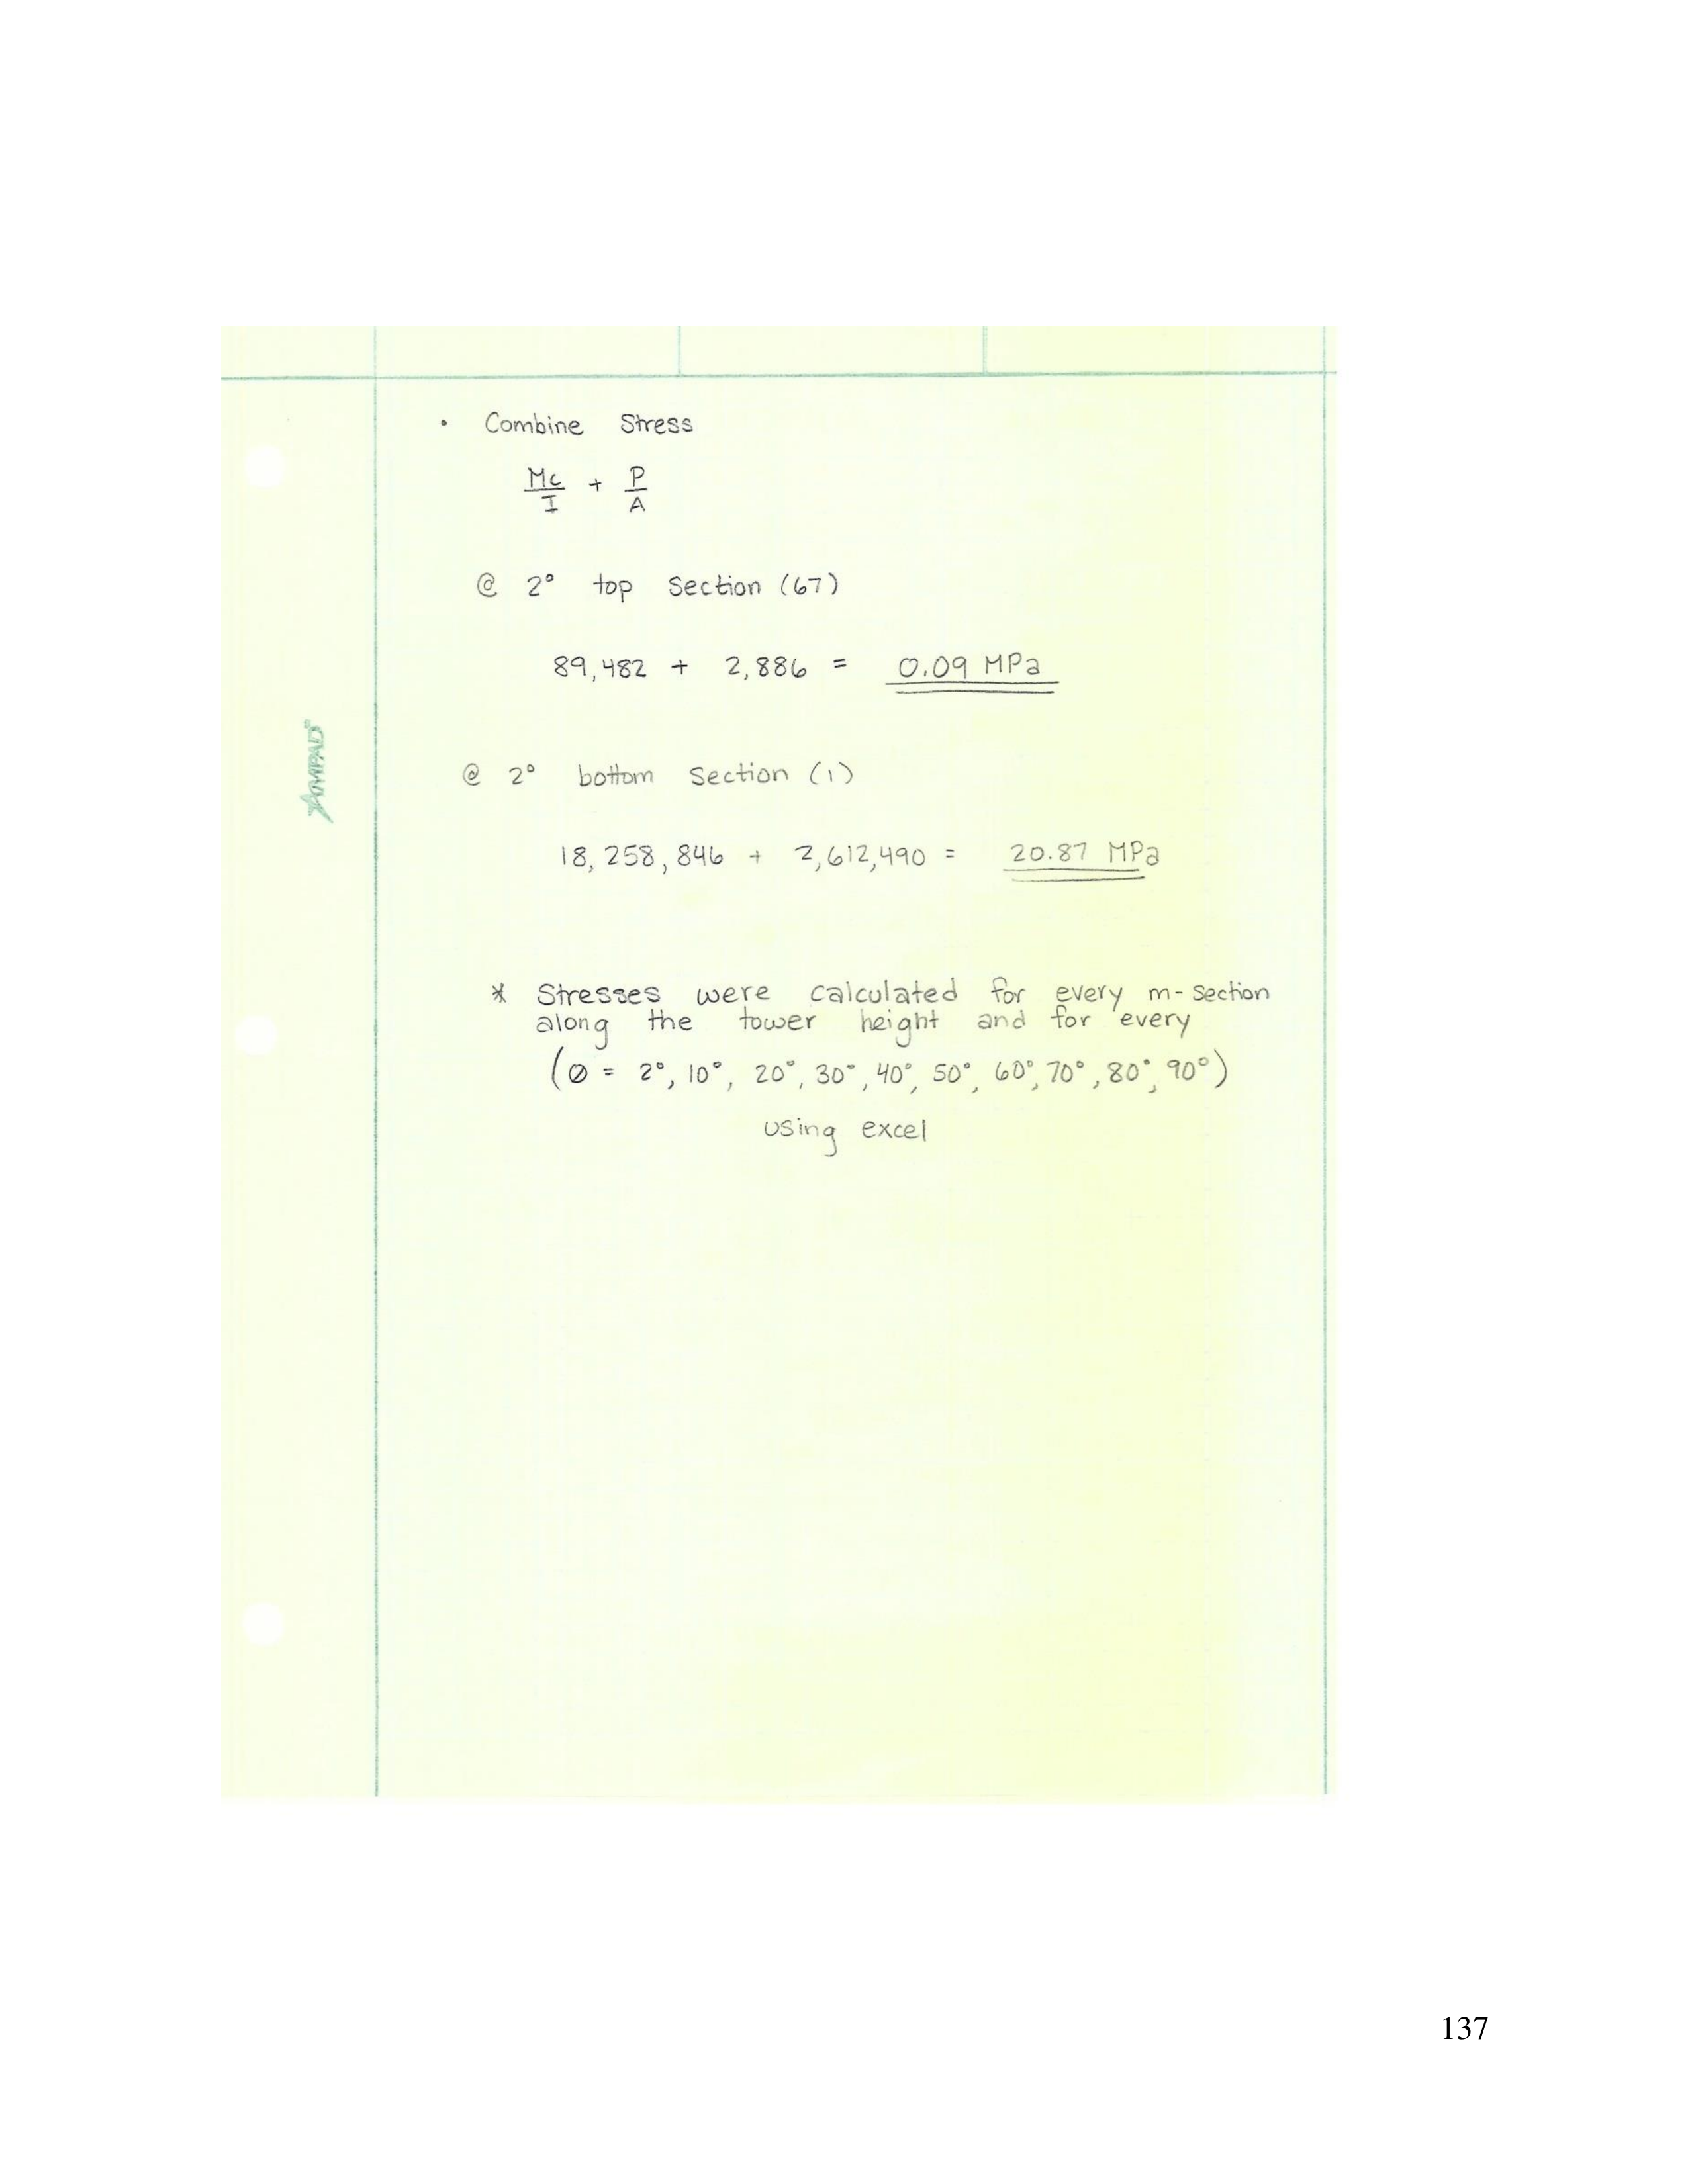 • Combine Stress
Mc/I + P/A
@ 2° top section (67)
89,482 + 2,886 = 0.09 MPa
@ 2° bottom section (1)
18,258,846 + 2,612,490 = 20.87 MPa
* Stresses were calculated for every m-section
along the tower height and for every
(Ø = 2°, 10°, 20°, 30°, 40°, 50°, 60°, 70°, 80°, 90°)
using excel
AMPAD®
137